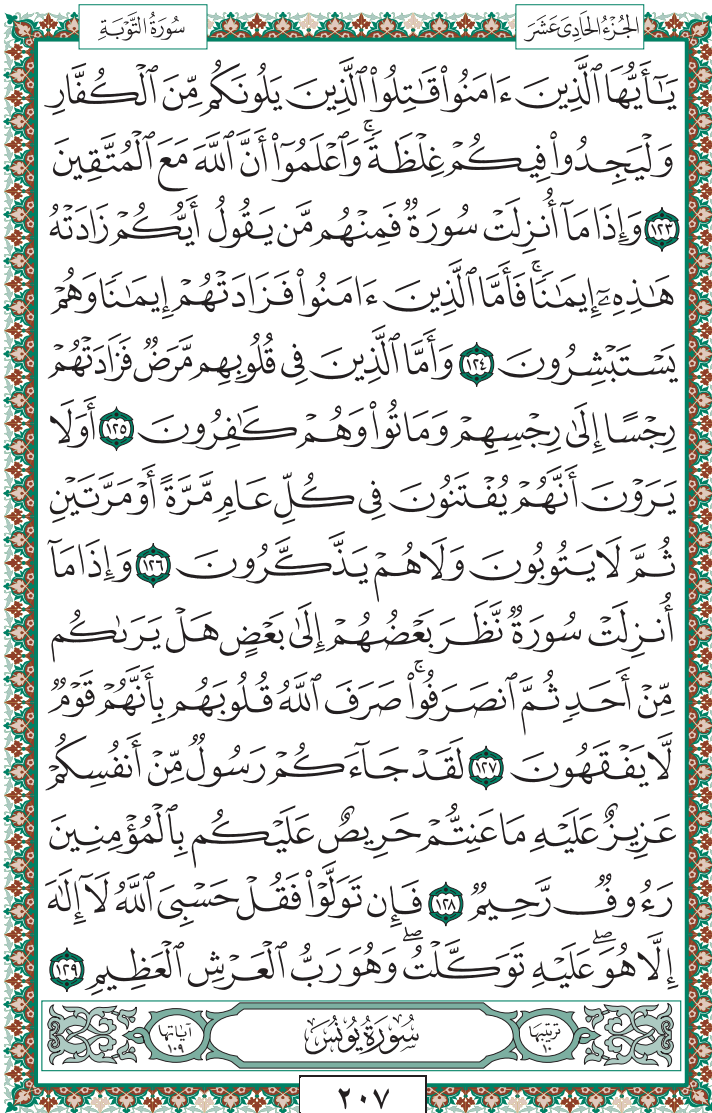 الجُزْءُ الحَادِى عَشَرَ
سُورَةُ التَّوْبَةِ
يَٰٓأَيُّهَا ٱلَّذِينَ ءَامَنُوا۟ قَٰتِلُوا۟ ٱلَّذِينَ يَلُونَكُم مِّنَ ٱلْكُفَّارِ
وَلْيَجِدُوا۟ فِيكُمْ غِلْظَةً ۚ وَٱعْلَمُوٓا۟ أَنَّ ٱللَّهَ مَعَ ٱلْمُتَّقِينَ
١٢٣ وَإِذَا مَآ أُنزِلَتْ سُورَةٌ فَمِنْهُم مَّن يَقُولُ أَيُّكُمْ زَادَتْهُ
هَٰذِهِۦٓ إِيمَٰنًا ۚ فَأَمَّا ٱلَّذِينَ ءَامَنُوا۟ فَزَادَتْهُمْ إِيمَٰنًا وَهُمْ
يَسْتَبْشِرُونَ ١٢٤ وَأَمَّا ٱلَّذِينَ فِى قُلُوبِهِم مَّرَضٌ فَزَادَتْهُمْ
رِجْسًا إِلَىٰ رِجْسِهِمْ وَمَاتُوا۟ وَهُمْ كَٰفِرُونَ ١٢٥ أَوَلَا
يَرَوْنَ أَنَّهُمْ يُفْتَنُونَ فِى كُلِّ عَامٍ مَّرَّةً أَوْ مَرَّتَيْنِ
ثُمَّ لَا يَتُوبُونَ وَلَا هُمْ يَذَّكَّرُونَ ١٢٦ وَإِذَا مَآ
أُنزِلَتْ سُورَةٌ نَّظَرَ بَعْضُهُمْ إِلَىٰ بَعْضٍ هَلْ يَرَىٰكُم
مِّنْ أَحَدٍ ثُمَّ ٱنصَرَفُوا۟ ۚ صَرَفَ ٱللَّهُ قُلُوبَهُم بِأَنَّهُمْ قَوْمٌ
لَّا يَفْقَهُونَ ١٢٧ لَقَدْ جَآءَكُمْ رَسُولٌ مِّنْ أَنفُسِكُمْ
عَزِيزٌ عَلَيْهِ مَا عَنِتُّمْ حَرِيصٌ عَلَيْكُم بِٱلْمُؤْمِنِينَ
رَءُوفٌ رَّحِيمٌ ١٢٨ فَإِن تَوَلَّوْا۟ فَقُلْ حَسْبِىَ ٱللَّهُ لَآ إِلَٰهَ
إِلَّا هُوَ ۖ عَلَيْهِ تَوَكَّلْتُ ۖ وَهُوَ رَبُّ ٱلْعَرْشِ ٱلْعَظِيمِ ١٢٩
ترتيبها
١٠
سُورَةُ يُونُسَ
آياتها
١٠٩
٢٠٧